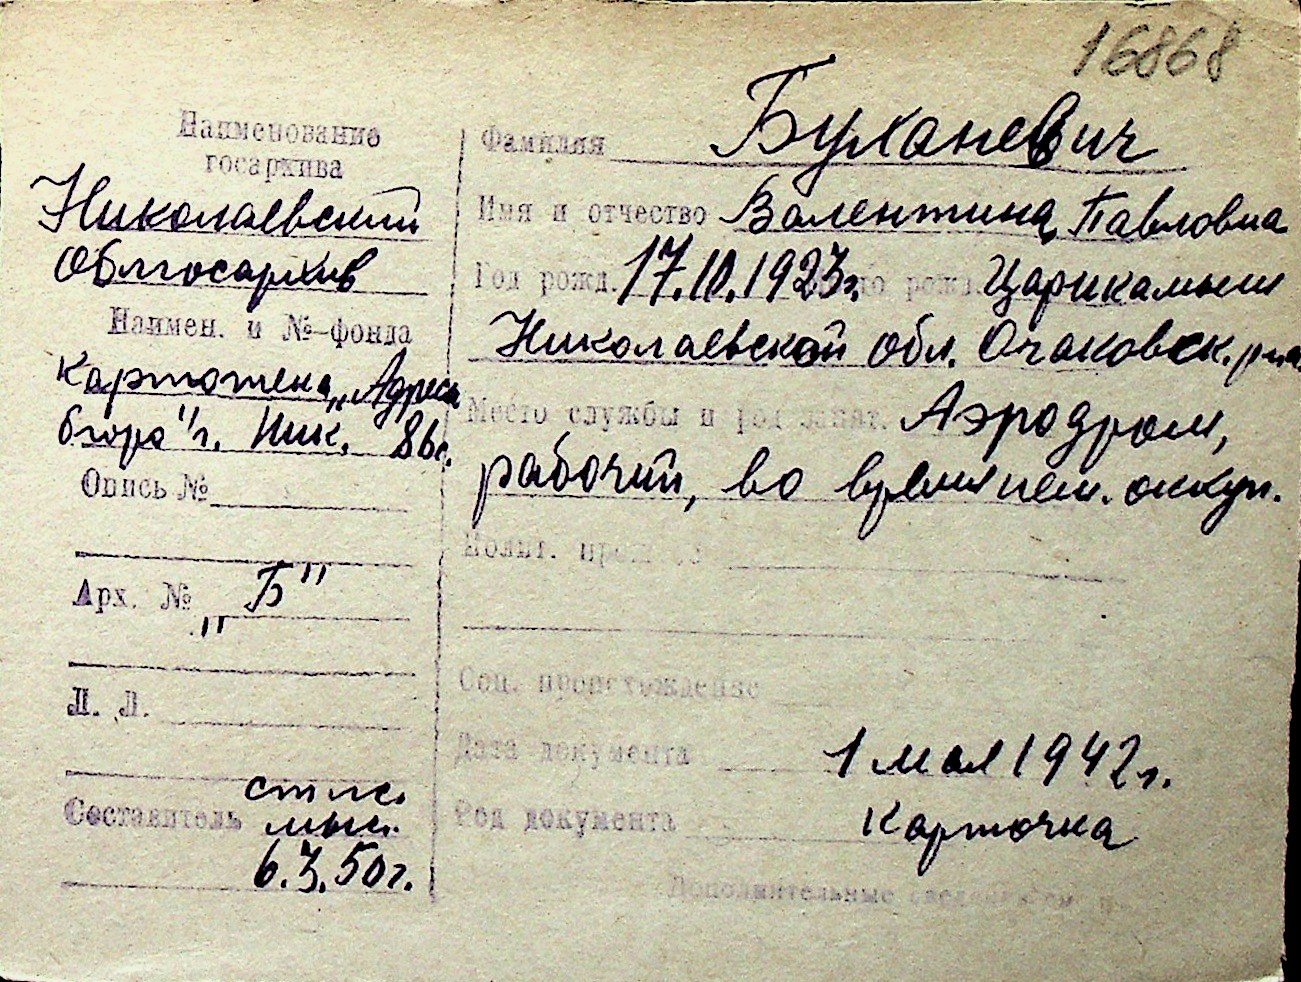 16868
Наименование
госархива
Николаевский
Облгосархив
Наимен. и №-фонда
картотека „Адресн
бюро" г. Ник.
Опись №
Арх. № „Б"
Л. Л.
Составитель
6.3.50г.
Фамилия Буханевич
Имя и отчество Валентина Павловна
Год рожд. 17.10.1923г. Место рожд. Царикамыш
Николаевской обл. Очаковск. р-на
Место службы и род занят. Аэродром,
рабочий, во время нем. оккуп.
Полит.
Соц. происхождение
Дата документа 1 мая 1942г.
Род документа карточка
Дополнительные сведения см.